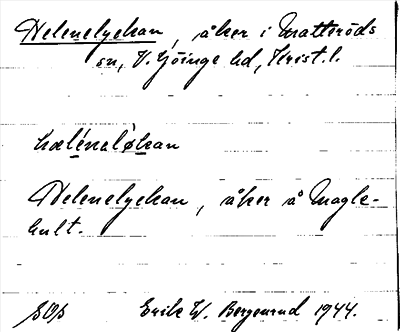 Helenelyckan, åker i Matteröds
sn, V. Göinge hd, Krist. l.
hæle´nalø̀kan
Helenelyckan, åker å Magle-
hult.
SOS Erik W. Bergenrud 1944.